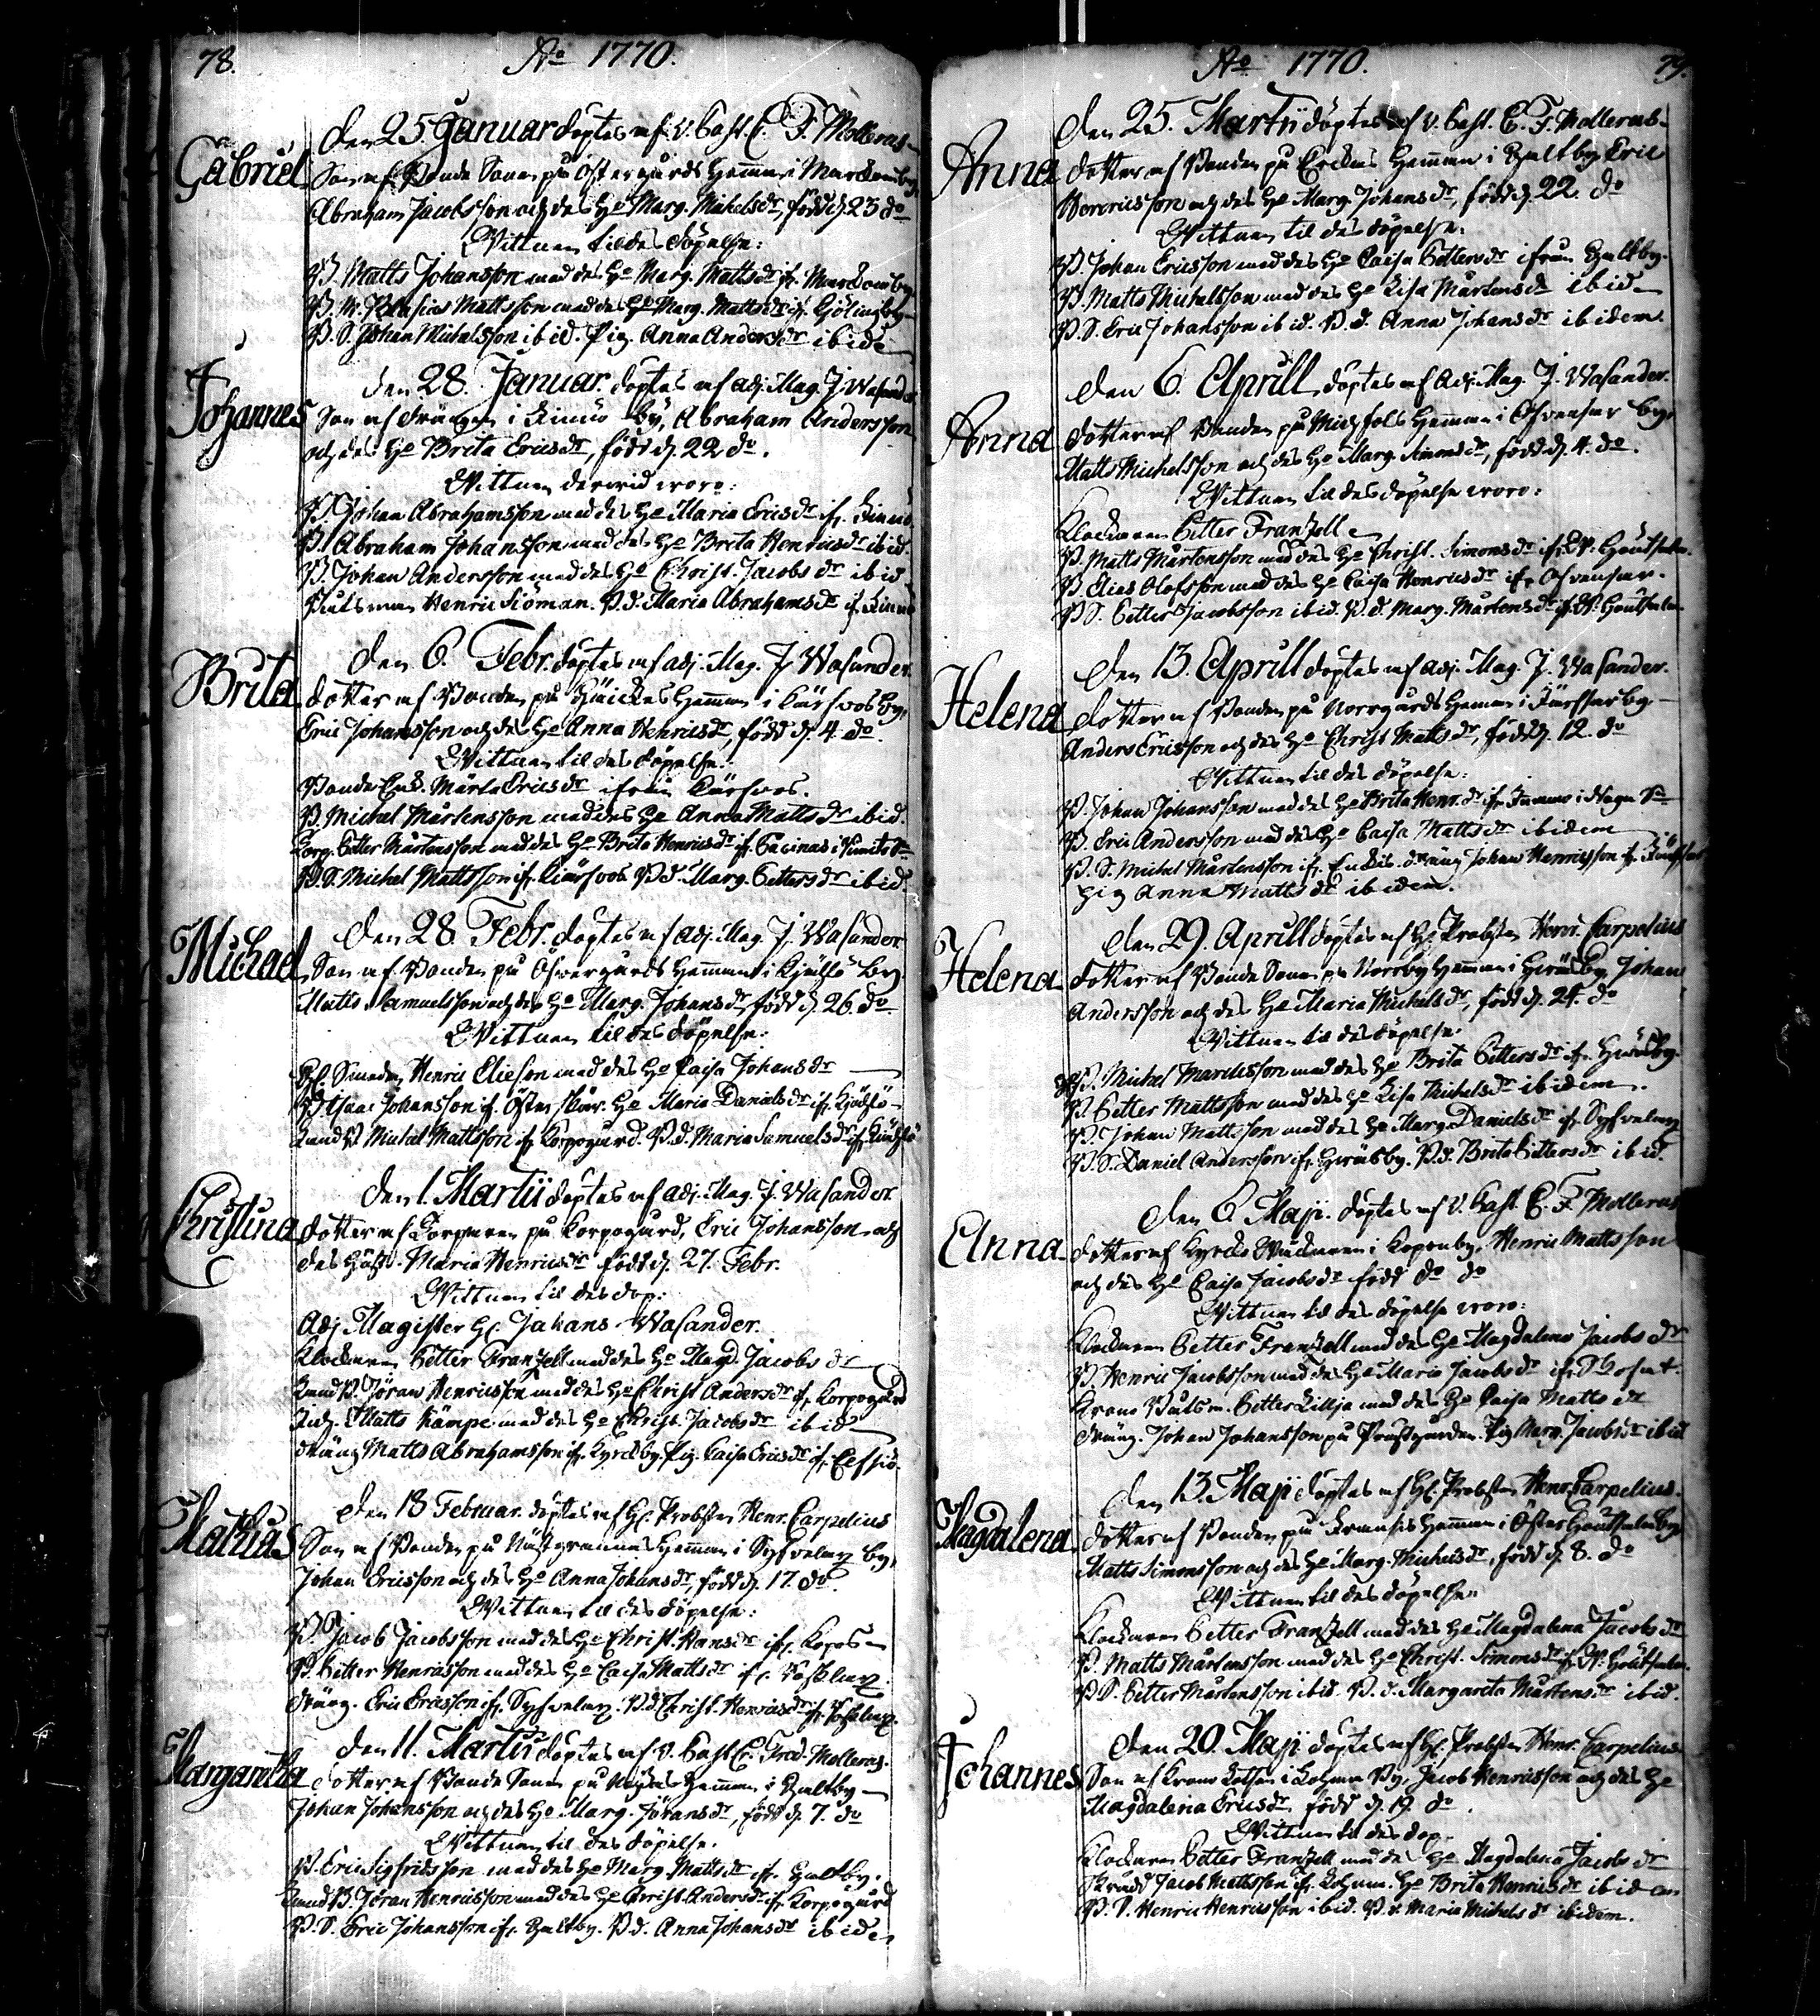 78.
Ao 1770.
Gabriel
Den 25 Januar döptes af V. Past. C. F. Molleras
Son af Bonde Sonen på Östergårds Hemman i Marckomby
Abraham Jacobsson och des Ho Marg. Michelsdr, född d. 23 do
Wittnen til des döpelse:
B. Matts Johansson med des Ho Marg. Mattsdr if. Marckomby
B. M. Mattsson med des Ho Marg. Mattsdr if.
B. S. Johan Michelsson ibid. Pig. Anna Andersdr ibide
Johannes
Den 28. Januar. döptes af adj. Mag. J. Wasander
Son af drängen i Rimito by, Abraham Andersson
och des Ho Brita Ericsdr, född d. 22 do.
Wittnen derwid woro:
B. Johan Abrahamsson med des Ho Maria Ericsdr if.
B. Abraham Johansson med des Ho Brita Henricsdr ibid.
B. Johan Andersson med des Ho Christ. Jacobsdr ibid
Båtsman Henric Siöman. B. d. Maria Abrahamsdr if.
Brita
Den 6. Febr. döptes af adj. Mag. J. Wasander.
dotter af Bonden på Hemman i Kärfvos by,
Eric Johansson och des Ho Anna Henricsdr, född d. 4. do.
Wittnen til des döpelse:
Bonde Enk. Märta Ericsdr ifrån Kärfvos.
B. Michel Mårtensson med des Ho Anna Mattsdr ibid.
Korp. Petter Mårtensson med des Ho Brita Henricsdr if.
B. S. Michel Mattsson if. Kärfvos B. d. Marg. Pettersdr ibid
Michael
Den 28 Febr. döptes af adj. Mag. J. Wasander
Son af Bonden på Öfvergårds Hemman i Kjälfö by
Matts Samuelsson och des Ho Marg. Johansdr, född d. 26. do
Wittnen til des döpelse:
Smeden Henric Elieson med des Ho Caisa Johansdr
B. Isaac Johansson if. Österskär. Ho Maria Danielsdr if. Kjälfö
B. Michel Mattsson if. Korpogård. B. d. Maria Samuelsdr if.
Christina
Den 1. Martii döptes af adj. Mag. J. Wasander.
dotter af Torparen på Korpogård, Eric Johansson och
des Hust. Maria Henricsdr född d. 27. Febr.
Wittnen til des dop:
Adj Magister Hr. Jahans Wasander.
Klockaren Petter Franzell med des Ho Magd. Jacobsdr
B. Jöran Henricsson med des Ho Christ Andersdr if. Korpogård
Matts Kämpe med des Ho Christ. Jacobsdr ibid
dräng Matts Abrahamsson if. Kyrckby. Pig. Caisa Ericsdr if.
Mathias
Den 18 Februar. döptes af Hr. Probsten Henr. Carpelius
Son af Bonden på Nästgrannas Hemman i by,
Johan Ericsson och des Ho Anna Johansdr, född d. 17. do.
Wittnen til des döpelse:
B. Jacob Jacobsson med des Ho Christ. Hansdr if. Korpo
B. Petter Henricsson med des Ho Caisa Mattsdr if.
dräng. Eric Ericsson if. B. d. Christ. Henricsdr if.
Margaretha
Den 11. Martii döptes af V. Past C. Fred. Molleras.
dotter af Bonde Sonen på Hemman i Galtby
Johan Johansson och des Ho Marg. Jöransdr, född d. 7. do
Wittnen til des döpelse.
B. Eric Sigfridsson med des Ho Marg. Mattsdr if. Galtby.
B. Jöran Henricsson med des Ho Christ. Andersdr if. Korpogård
B. S. Eric Johansson if. Galtby. B. d. Anna Johansdr ibide
79.
Ao 1770.
Anna
Den 25. Martii döptes af V. Past. C. F. Molleras
dotter af Bonden på Erickas Hemman i Galtby Eric
Henricsson och des Ho Marg. Johansdr, född d. 22. do
Wittnen til des döpelse:
B. Johan Ericsson med des Ho Caisa Pettersdr ifrån Galtby.
B. Matts Michelsson med des Ho Lisa Mårtensdr ibide
B. S. Eric Johansson ibid. B. d. Anna Johansdr ibidem.
Anna
Den 6. Aprill döptes af Adj. Mag. J. Wasander.
dotter af Bonden på Michels Hemman i Ofvensar by,
Matts Michelsson och des Ho Marg. Simonsdr, född d. 4. do.
Wittnen til des döpelse woro:
Klockaren Petter Franzell
B. Matts Mårtensson med des Ho Christ. Simonsdr if. W.
B. Elias Olofsson med des Ho Caisa Henricsdr if. Ofvensar.
B S. Petter Jacobsson ibid. B. d. Marg. Mårtensdr if. W.
Helena
Den 13. Aprill döptes af adj. Mag. J. Wasander.
dotter af Bonden på Norrgårds Hemman i by
Anders Ericsson och des Ho Christ Mattsdr, född d. 12. do
Wittnen til des döpelse:
B. Johan Johansson med des Ho Brita Henr.dr if. i Nagu Sn
B. Eric Andersson med des Ho Caisa Mattsdr ibidem
B. S. Michel Mårtensson if. dräng Johan Henricsson if.
Pig Anna Mattsdr ibidem.
Helena
Den 29. Aprill döptes af Hr Probsten Henr. Carpelius
dotter af Bonde Sonen på Norrby Hemman i by, Johan
Andersson och des Ho Maria Michelsdr, född d. 24. do
Wittnen til des döpelse:
B. Michel Marcusson med des Ho Brita Pettersdr if.
B. Petter Mattsson med des Ho Lisa Michelsdr ibidem.
B. Johan Mattsson med des Ho Marg. Danielsdr if.
B. S. Daniel Andersson if. B. d. Brita Pettersdr ibid.
Anna
Den 6 Maji. döptes af V. Past. C. F. Molleras
dotter af Kyrcko Wäcktaren i Korpoby, Henric Mattsson
och des Ho Caisa Jacobsdr född do do
Wittnen til des döpelse woro:
Klockaren Petter Franzell med des Ho Magdalena Jacobsdr
B. Henric Jacobsson med des Ho Maria Jacobsdr if.
Krono Båtsm. Petter Lillja med des Ho Caisa Mattsdr
dräng. Johan Johansson på Prästgården. Pig Marg. Jacobsdr ibid
Magdalena
Den 13. Maji döptes af Hr. Probsten Henr. Carpelius.
dotter af Bonden på Hemman i Öster by
Matts Simonsson och des Ho Marg. Michelsdr, född d. 8. do
Wittnen til des döpelse
Klockaren Petter Franzell med des Ho Magdalena Jacobsdr
B. Matts Mårtensson med des Ho Christ. Simonsdr if. W.
B S. Petter Mårtensson ibid. B. d. Margareta Mårtensdr ibid.
Johannes
Den 20. Maji döptes af Hr. Probsten Henr. Carpelius
Son af Krono Båtsm i by, Jacob Henricsson och des Ho
Magdalena Ericsdr född d. 19. do.
Wittnen til des dop.
Klockaren Petter Franzell med des Ho Magdalena Jacobsdr
Jacob Mattsson if. Ho Brita Henricsdr ibidem
B. S. Henric Henricsson ibid. B. d. Maria Michelsdr ibidem.